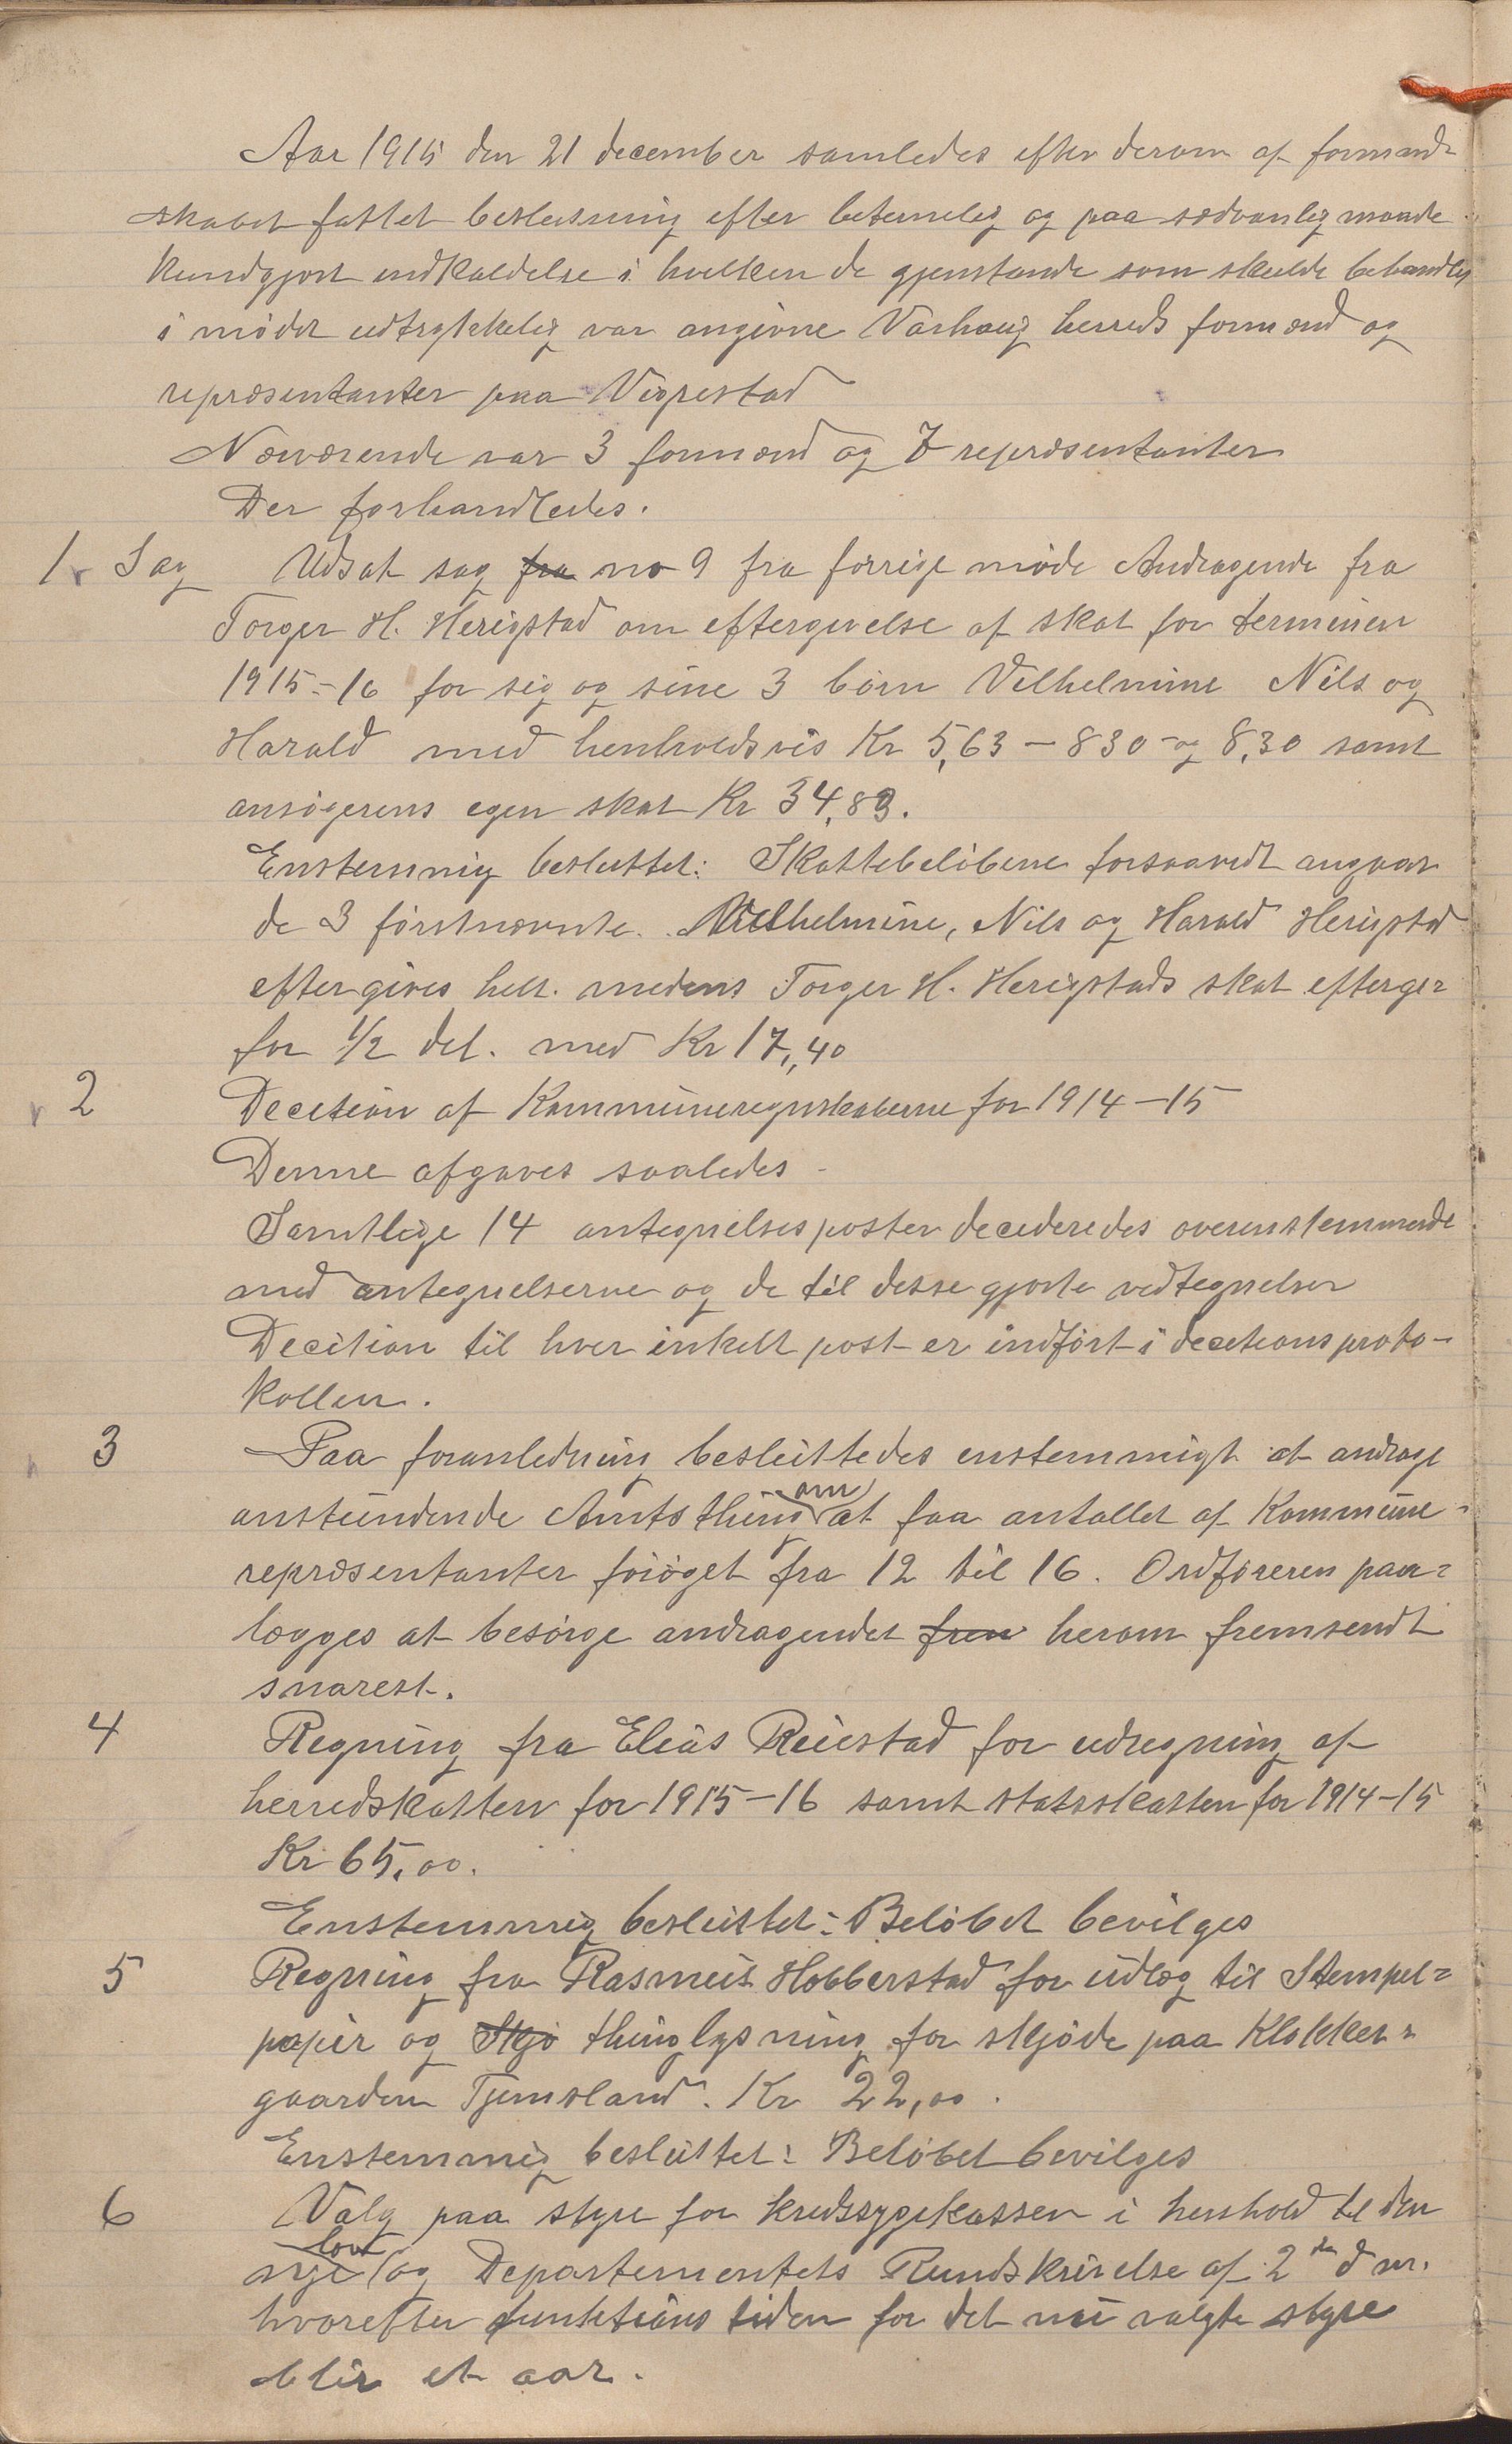 Aar 1915 den 21 december samledes efter derom af formand-
skabet fattet beslutning efter betimelig og paa sedvanlig maade
kundgjort indkaldelse i hvilken de gjenstande som skulde behandles
i mødet udtrykkelig var angivne Varhaug herreds formænd og
repræsentanter paa Vigrestad
Nærværende var 3 formænd og 7 repræsentanter
Der forhandledes.
1 Sag Udsat sag fra no 9 fra forrige møde Andragende fra
Torger H. Herigstad om eftergivelse af skat for terminen
1915-16 for sig og sine 3 børn Vilhelmine Nils og
Harald med henholdsvis Kr 5,63 - 830 og 8,30 samt
ansøgerens egen skat Kr 34,83.
Enstemmig besluttet: Skattebeløbene forsaavidt angaar
de 3 førstnævnte Vilhelmine, Nils og Harald Herigstad
eftergives helt. medens Torger H. Herigstads skat efterge-
for 1/2 del. med Kr 17,40
2 Decition af Kommuneregnskaberne for 1914-15
Denne afgaves saaledes -
Samtlige 14 antegnelsesposter decideredes overenstemmende
med antegnelserne og de til desse gjorte vedtegnelser
Decition til hver enkelt post er indført i decitionsproto-
kollen.
3 Paa foranledning besluttedes enstemmigt at andrage
anstundende Amtsthing om at faa antallet af Kommune-
repræsentanter forøget fra 12 til 16. Ordføreren paa-
lægges at besørge andragendet frem herom fremsendt
snarest.
4 Regning fra Elias Reiestad for udregning af
herredskatten for 1915-16 samt statsskatten for 1914-15
Kr 65,00.
Enstemmig besluttet: Beløbet bevilges
5 Regning fra Rasmus Hobberstad for udlæg til Stempel-
papir og Skjø thinglysning for skjøde paa Klokker-
gaarden Tjemsland. Kr 22,00.
Enstemmig besluttet: Beløbet bevilges
6 Valg paa styre for kredssygekassen i henhold til den
nye lov og Departementets Rundskrivelse af 2den d m.
hvorefter funktions tiden for det nu valgte styre
blir et aar.